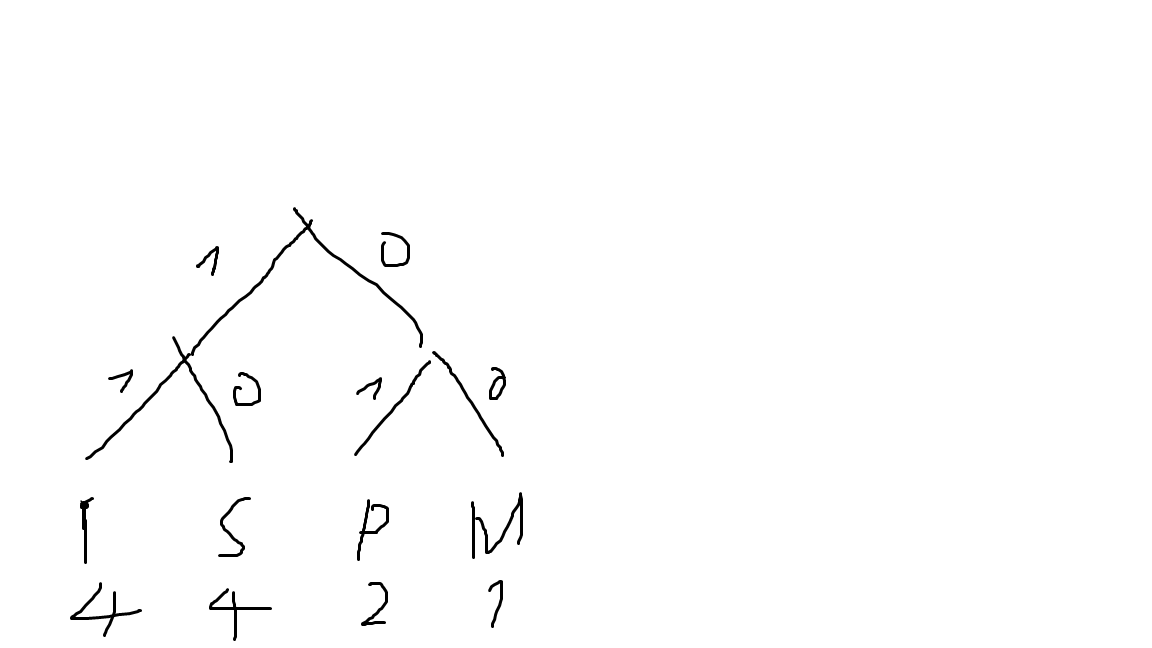 1 0
1 0 1 0
I S P M
4 4 2 1